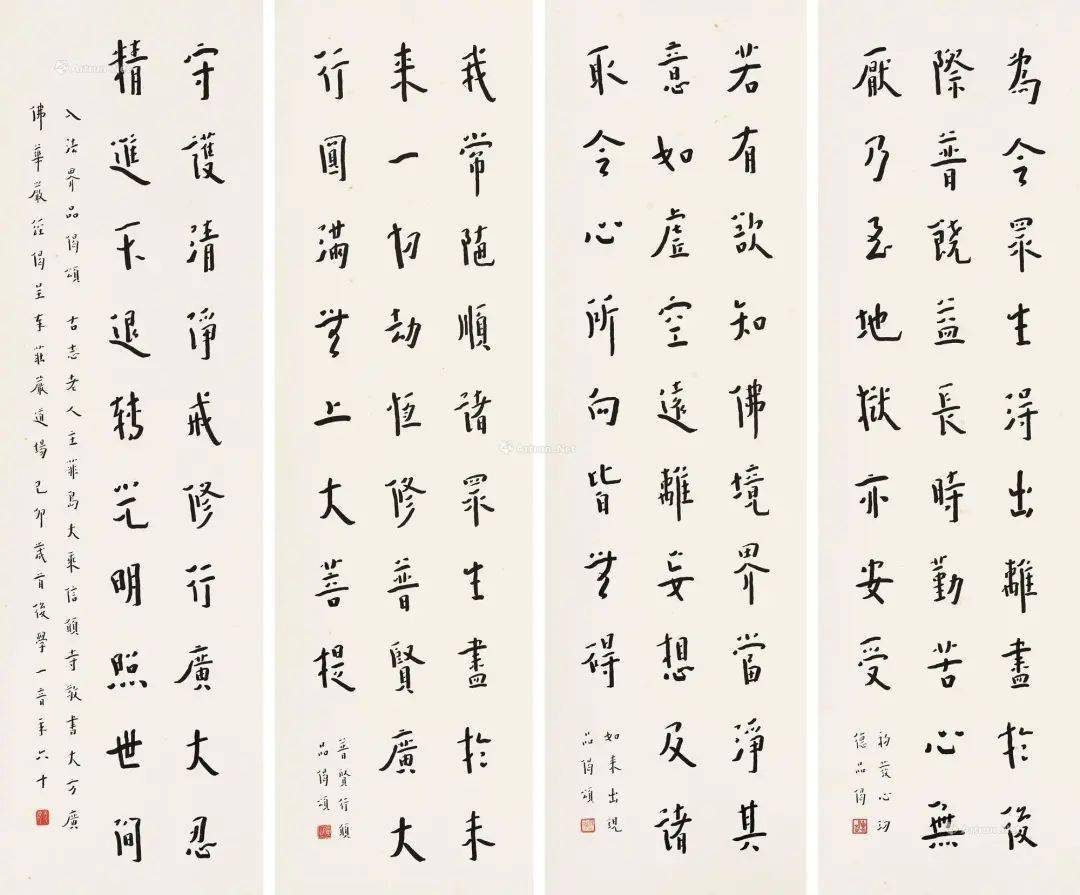 為令眾生得出離盡於後
際普饒益長時勤苦心無
厭乃至地獄亦安受
初發心功
德品偈
若有欲知佛境界當淨其
意如虛空遠離妄想及諸
取令心所向皆無碍
如來出現
品偈頌
我常隨順諸眾生盡於未
來一切劫恆修普賢廣大
行圓滿無上大菩提
普賢行願
品偈頌
守護清淨戒修行廣大忍
精進不退轉光明照世間
入法界品偈頌 古志老人主菲島大乘信願寺敬書大方廣
佛華嚴經偈呈奉莊嚴道場 己卯歲首後學一音年六十
Artron.Net